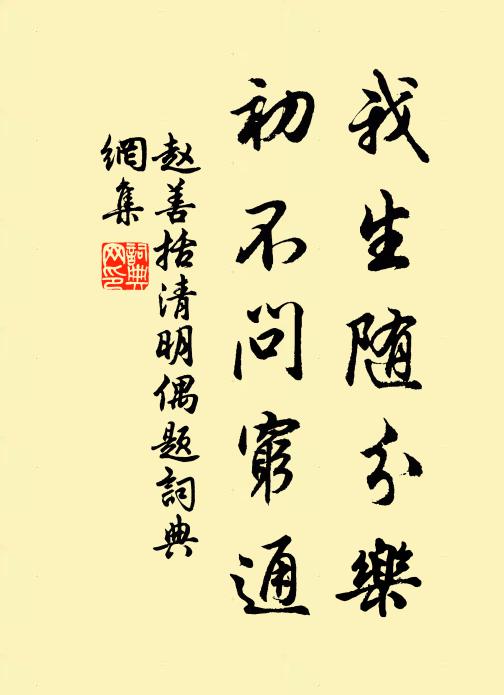 我生随分樂
初不问窮通
赵善括清明偶题詞典
網集
詞典网印